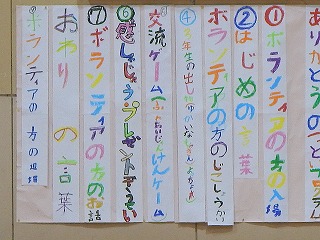 ありがとうのつどいプログラム
①ボランティアの方の入場
②はじめの言葉
ボランティアの方のじこしょうかい
④3年生の出し
交流ゲーム(ふえおにじゃんけんゲーム
⑥感しゃじょう、プレゼントぞうてい
⑦ボランティアの方のお話
おわりの言葉
ボランティアの方の退場